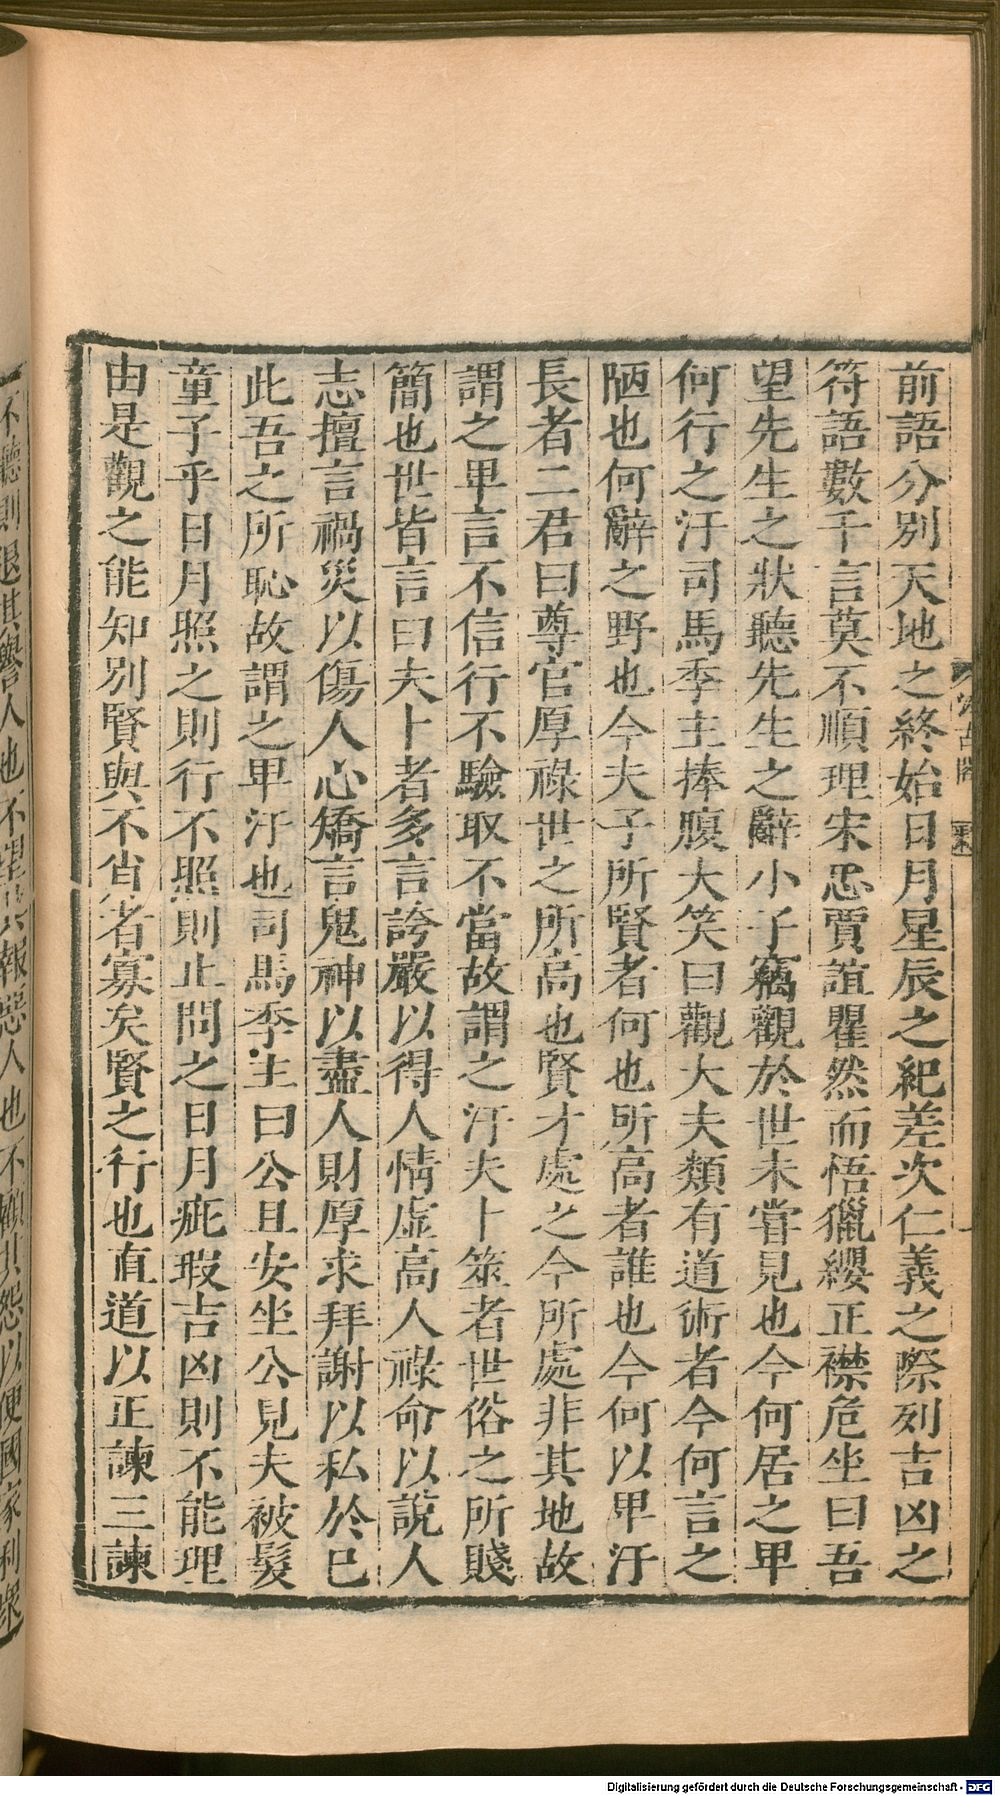 前語分別天地之終始日月星辰之紀差次仁義之際列吉凶之
符語數千言莫不順理宋忠賈誼瞿然而悟獵纓正襟危坐曰吾
望先生之狀聽先生之辭小子竊觀於世未嘗見也今何居之卑
何行之汙司馬季主捧腹大笑曰觀大夫類有道術者今何言之
陋也何辭之野也今夫子所賢者何也所高者誰也今何以卑汙
長者二君曰尊官厚祿世之所高也賢才處之今所處非其地故
謂之卑言不信行不驗取不當故謂之汙夫卜筮者世俗之所賤
簡也世皆言曰夫卜者多言誇嚴以得人情虛高人祿命以說人
志擅言禍災以傷人心矯言鬼神以盡人財厚求拜謝以私於己
此吾之所恥故謂之卑汙也司馬季主曰公且安坐公見夫被髮
童子乎日月照之則行不照則止問之日月疵瑕吉凶則不能理
由是觀之能知別賢與不肖者寡矣賢之行也直道以正諫三諫
不聽則退其譽人也不望其報惡人也不顧其怨以便國家利衆
Digitalisierung gefördert durch die Deutsche Forschungsgemeinschaft - DFG